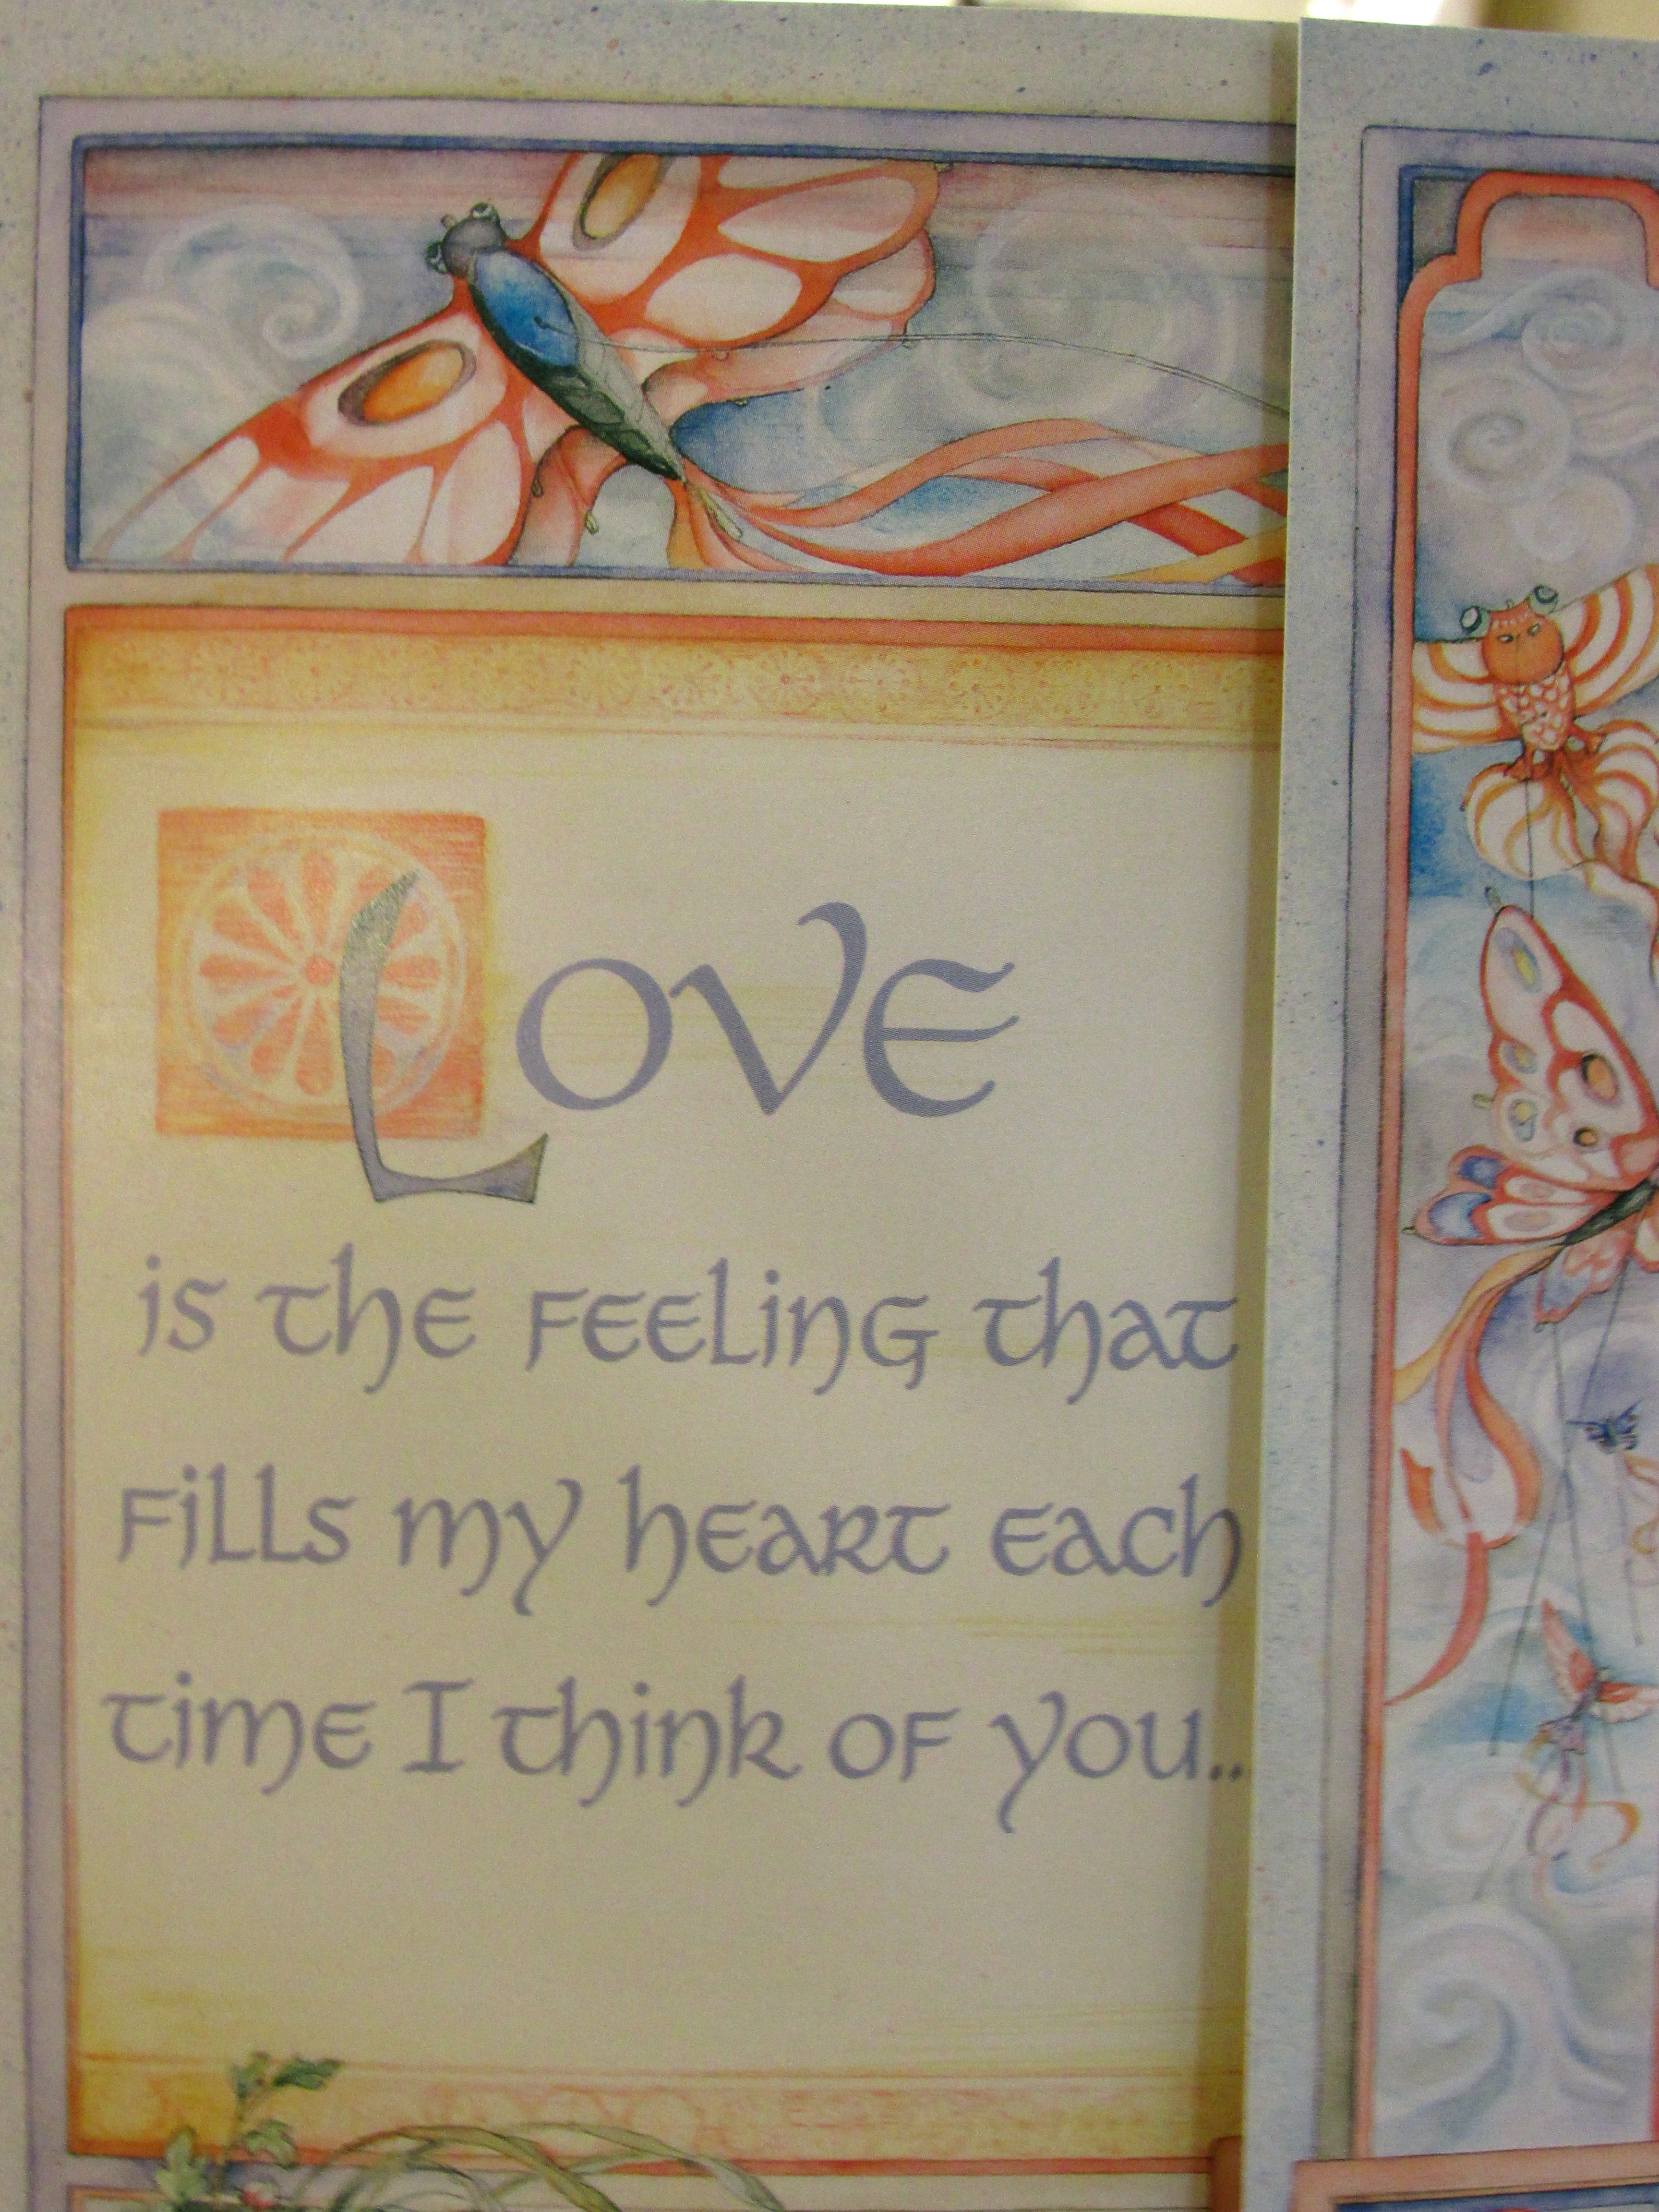 Love
is the feeling that
fills my heart each
time I think of you..